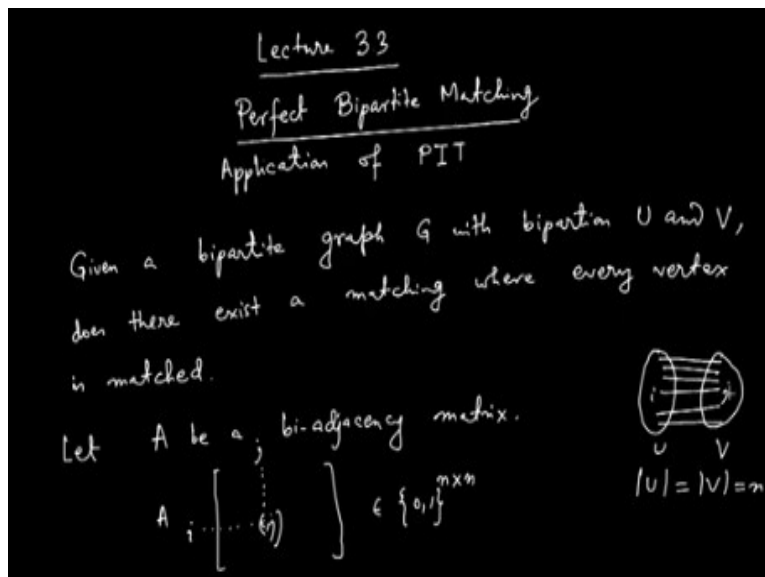 Lecture 33
Perfect Bipartite Matching
Application of PIT
Given a bipartite graph G with bipartion U and V,
does there exist a matching where every vertex
is matched.
i j
U V
Let A be a bi-adjacency matrix.
|U| = |V| = n
j
A i [ (i,j) ] ∈ {0,1}^{n×n}